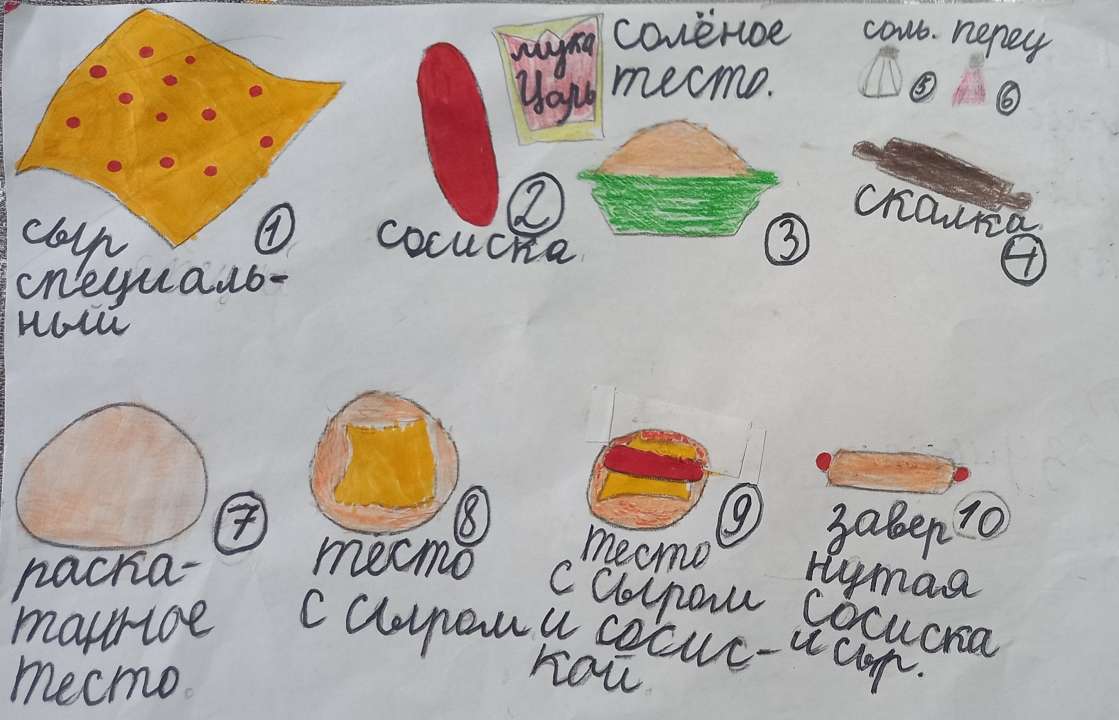 сыр
специаль-
ный
1
сосиска
2
мука
Царь
солёное
тесто.
3
соль. перец
5 6
скалка.
4
раска-
танное
тесто.
7
тесто
с сыром
8
тесто
с сыром
и сосис-
кой.
9
завер
нутая
сосиска
и сыр.
10